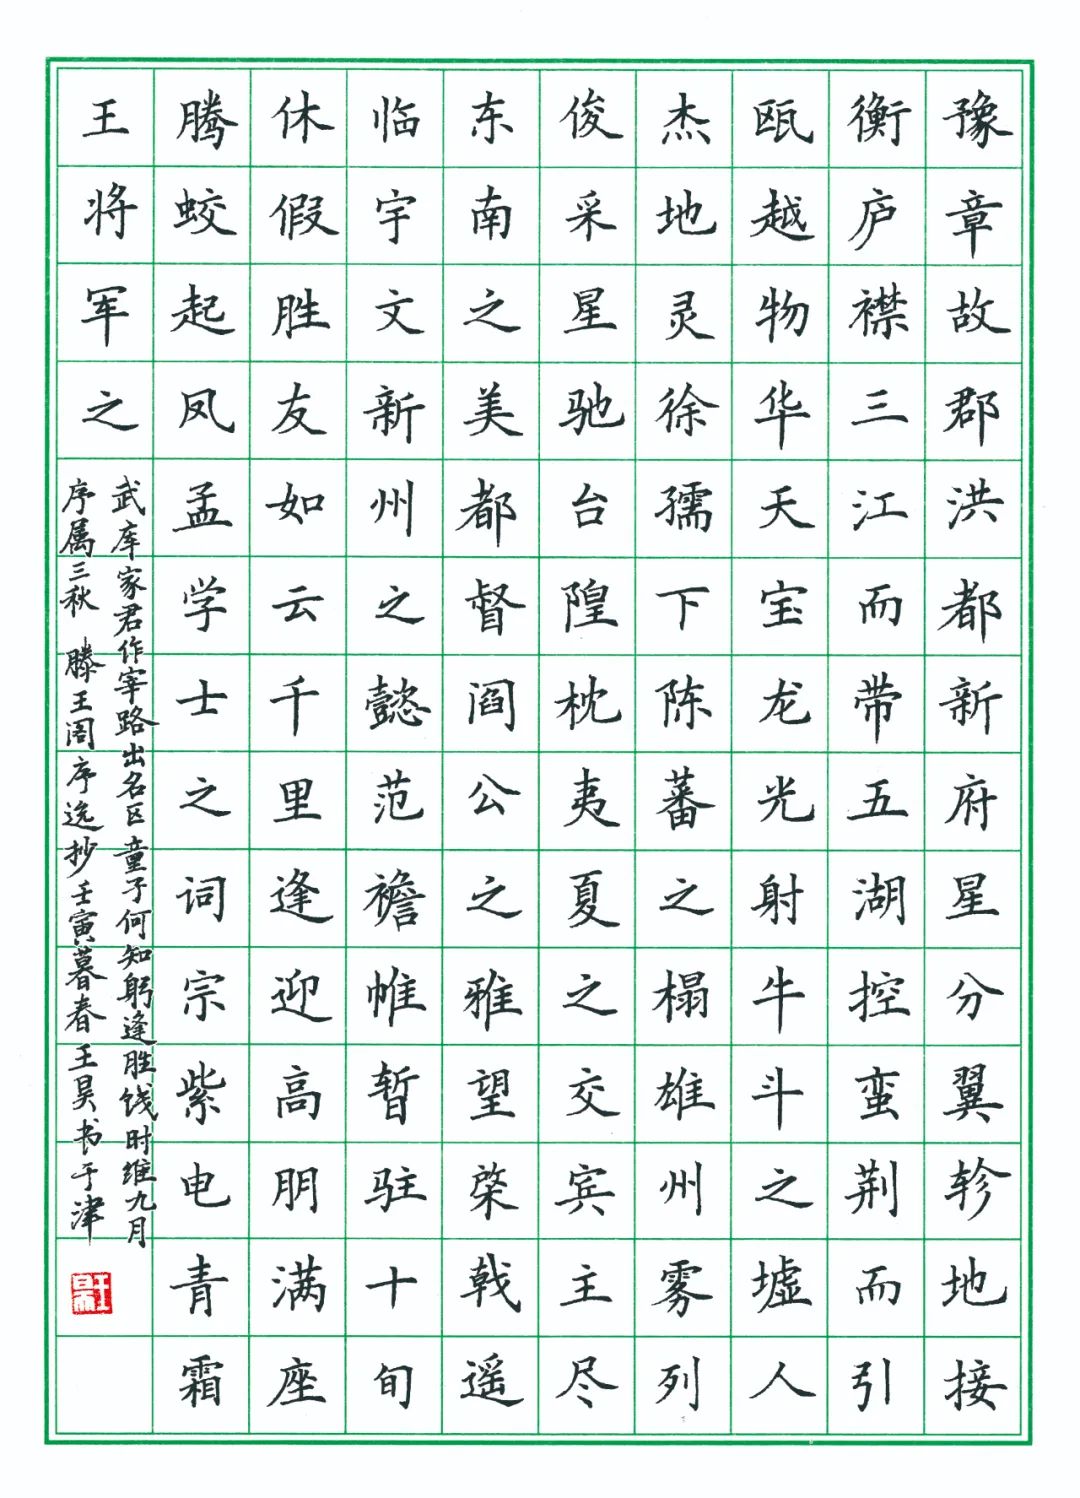 豫章故郡洪都新府星分翼轸地接
衡庐襟三江而带五湖控蛮荆而引
瓯越物华天宝龙光射牛斗之墟人
杰地灵徐孺下陈蕃之榻雄州雾列
俊采星驰台隍枕夷夏之交宾主尽
东南之美都督阎公之雅望棨戟遥
临宇文新州之懿范襜帷暂驻十旬
休假胜友如云千里逢迎高朋满座
腾蛟起凤孟学士之词宗紫电青霜
王将军之
武库家君作宰路出名区童子何知躬逢胜饯时维九月
序属三秋 滕王阁序选抄壬寅暮春王昊书于津